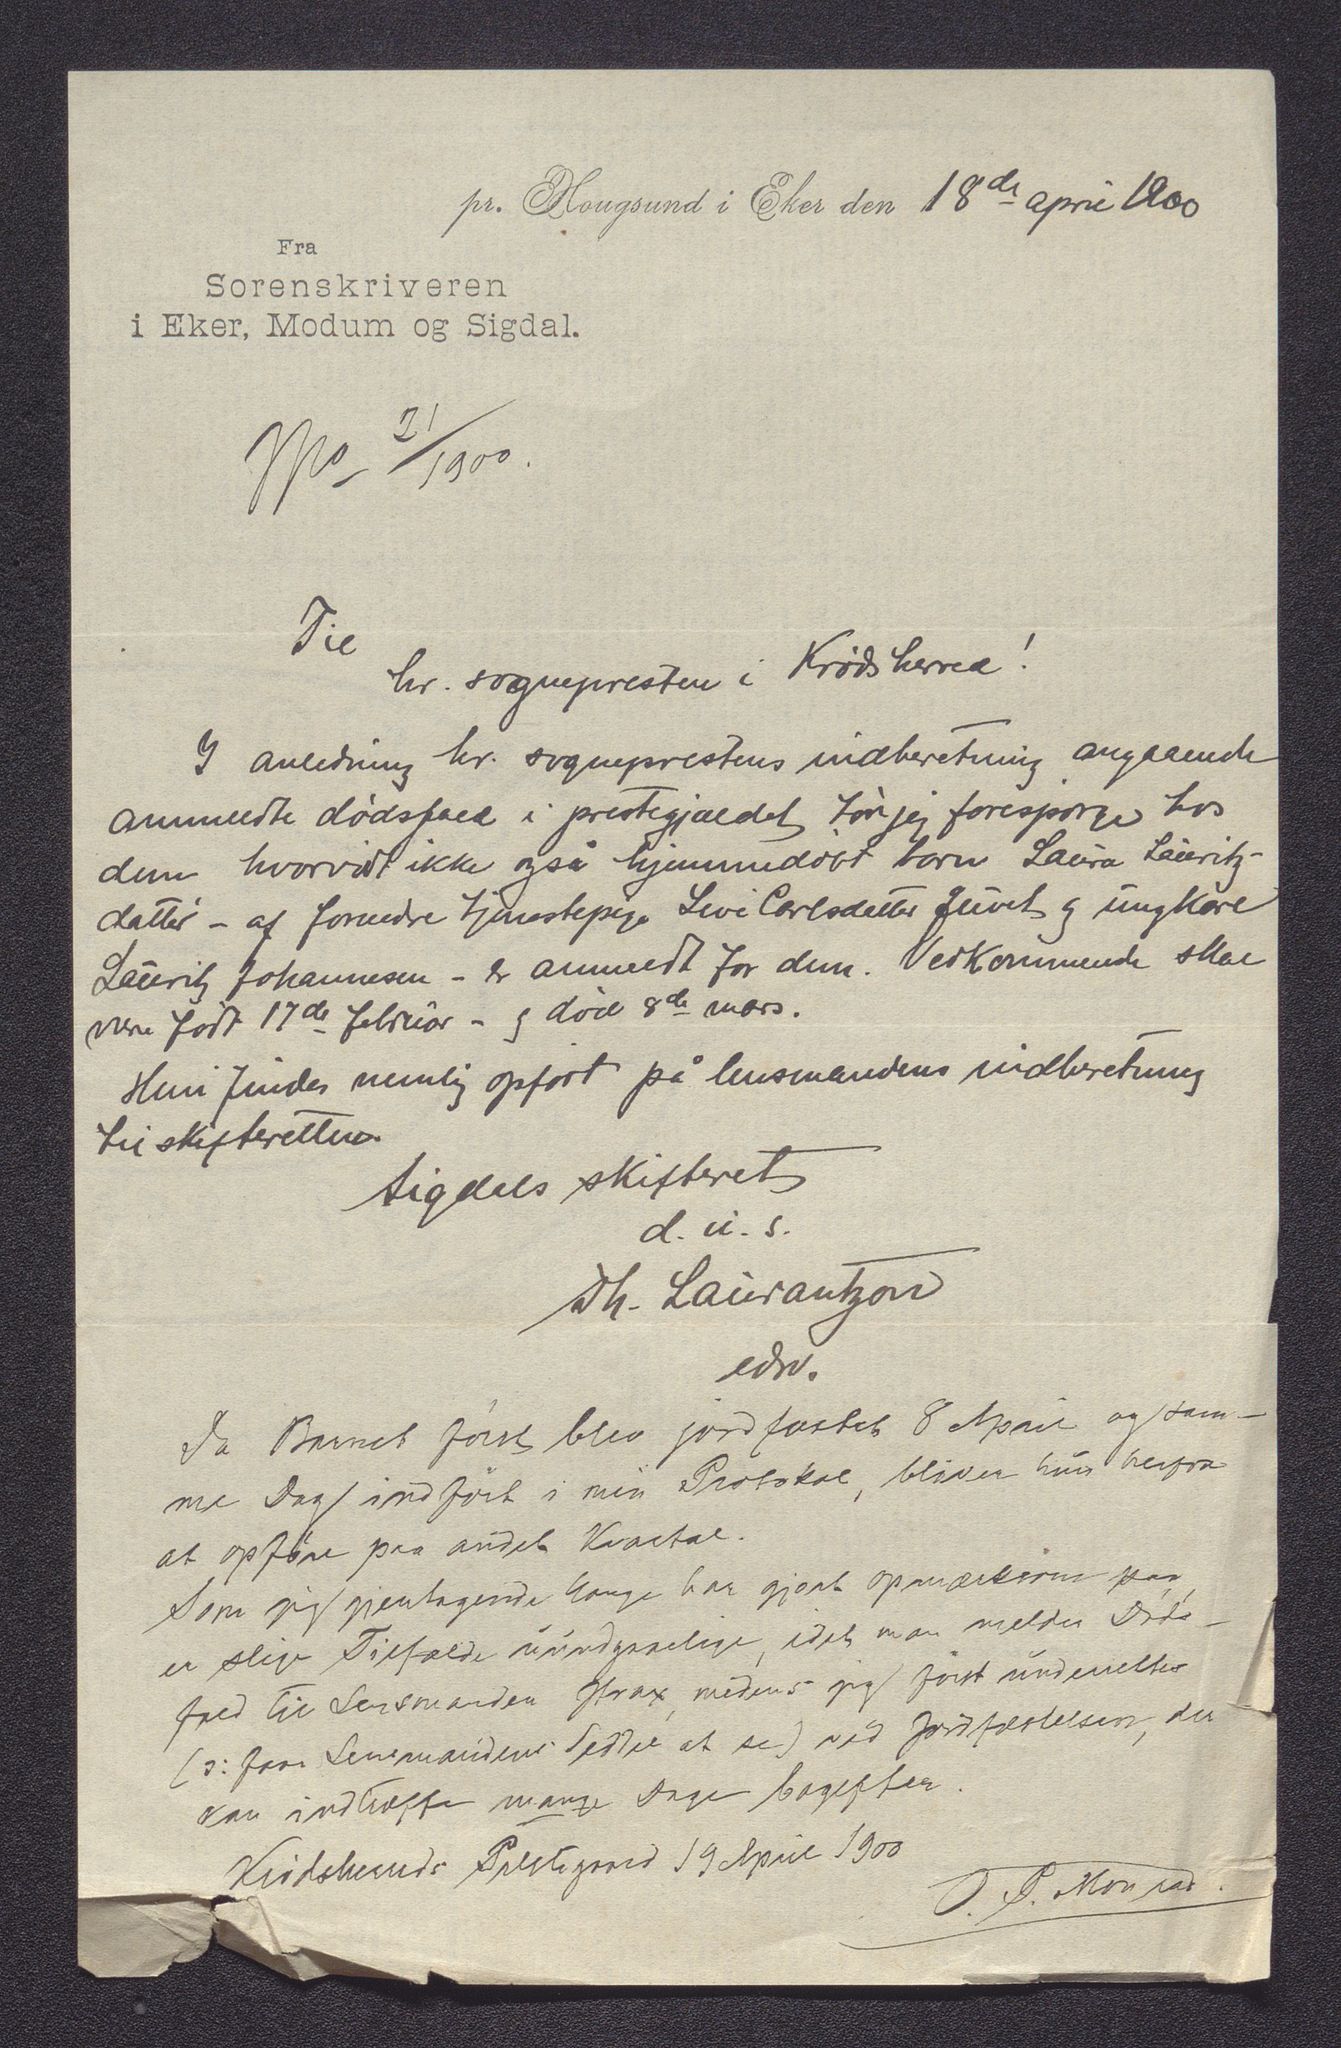 pr. Hougsund i Eker den 18de april 1900
Fra
Sorenskriveren
i Eker, Modum og Sigdal.
Jpo 21/1900.
Til
hr. sognepresten i Krødsherred!
I anledning hr. sogneprestens indberetning angaaende
anmeldte dødsfald i prestegjældet tør jeg forespørge hos
dem hvorvidt ikke også hjemmedøbt barn Laura Lauritz-
datter - af foreldre tjenestepige Live Carlsdatter Juvet og ungkarl
Lauritz Johannesen - er anmeldt for dem. Vedkommende skal
være født 17de februar - og død 8de mars.
Hun findes nemlig opført på lensmandens indberetning
til skifteretten.
Sigdals skifteret
d. u. s.
Th. Laurantzon
edsv.
Da Barnet først blev jordfæstet 8 April og sam-
me Dag indført i min Protokol, bliver hun herfra
at opføre paa andet Kvartal.
Som jeg gjentagende Gange har gjort opmærksom paa,
er slige Tilfælde uundgaaelige, idet man melder Døds-
fald til Lensmanden strax, medens jeg først underrettes
(ɔ: faar Lensmandens Seddel at se) ved Jordfæstelsen, der
kan indtræffe mange Dage bagefter.
Krødsherreds Prestegaard 19 April 1900
J. P. Monrad.